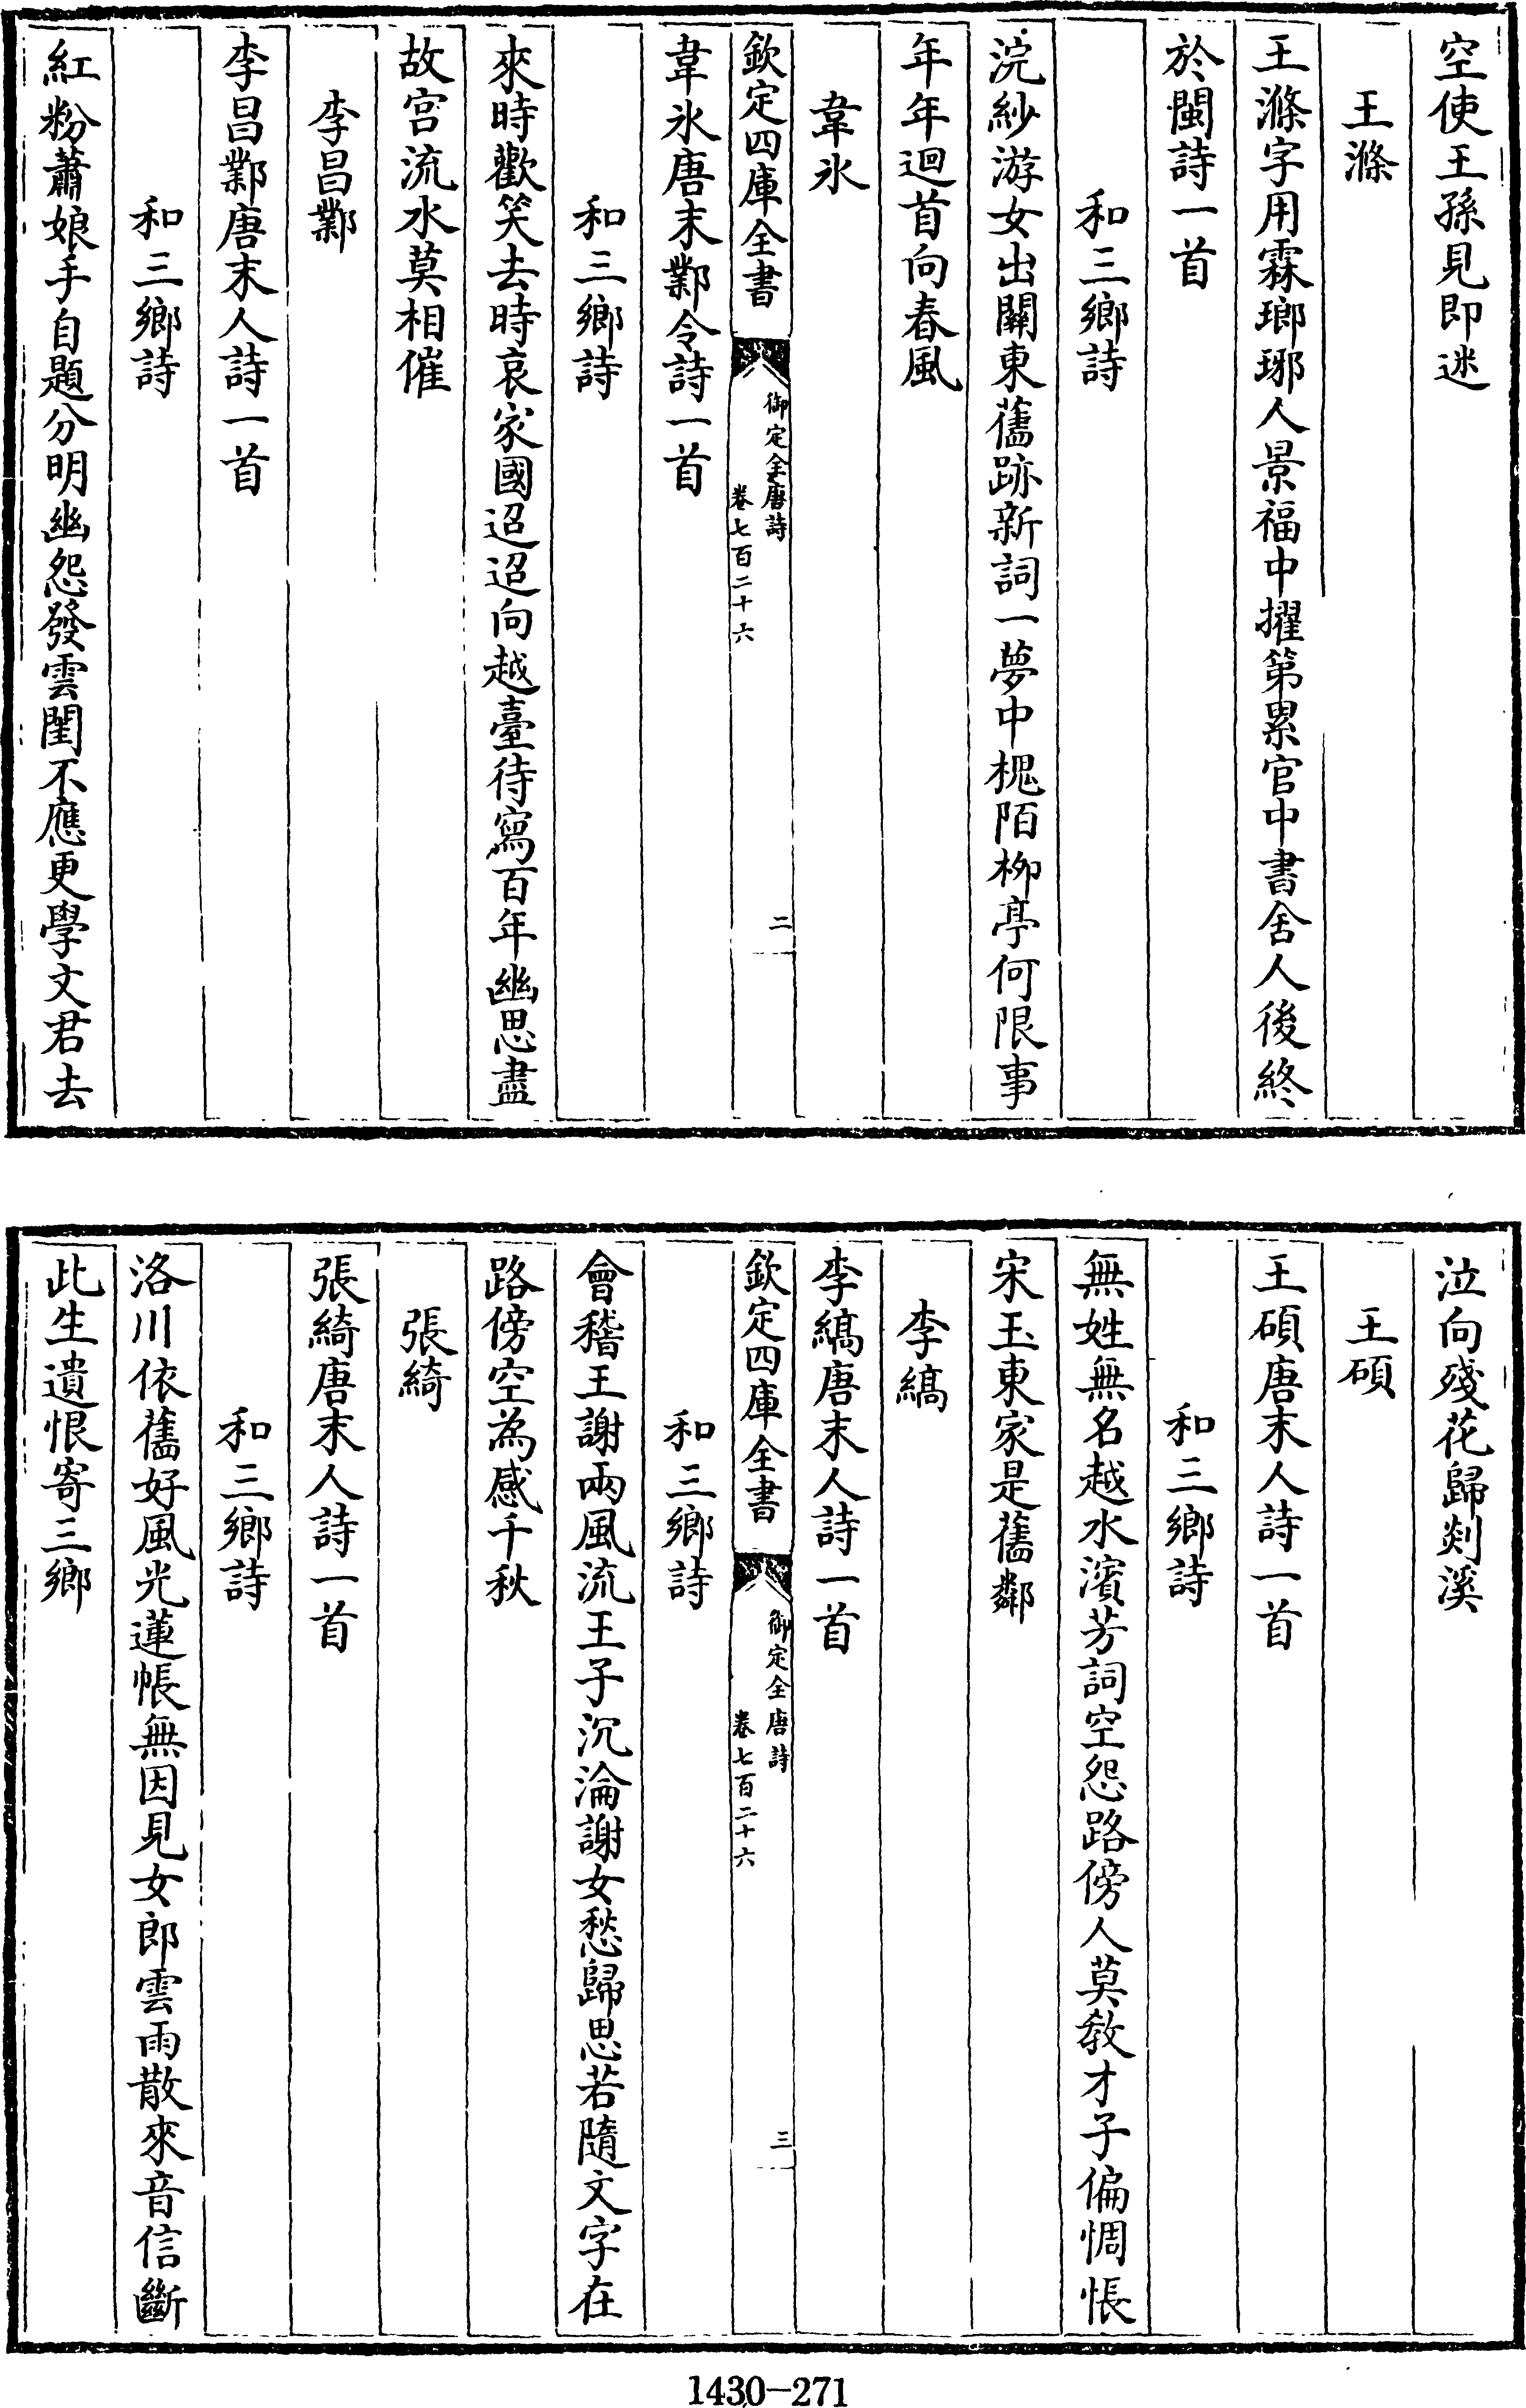 空使王孫見即迷
王滌
王滌字用霖瑯琊人景福中擢第累官中書舍人後終
於閩詩一首
和三鄉詩
浣紗游女出關東舊跡新詞一夢中槐陌柳亭何限事
年年迴首向春風
韋氷
欽定四庫全書
御定全唐詩
卷七百二十六
二
韋氷唐末鄴令詩一首
和三鄉詩
來時歡笑去時哀家國迢迢向越臺待寫百年幽思盡
故宮流水莫相催
李昌鄴
李昌鄴唐末人詩一首
和三鄉詩
紅粉蕭娘手自題分明幽怨發雲閨不應更學文君去
泣向殘花歸剡溪
王碩
王碩唐末人詩一首
和三鄉詩
無姓無名越水濱芳詞空怨路傍人莫教才子偏惆悵
宋玉東家是舊鄰
李縞
李縞唐末人詩一首
欽定四庫全書
御定全唐詩
卷七百二十六
三
和三鄉詩
會稽王謝兩風流王子沉淪謝女愁歸思若隨文字在
路傍空為感千秋
張綺
張綺唐末人詩一首
和三鄉詩
洛川依舊好風光蓮帳無因見女郎雲雨散來音信斷
此生遺恨寄三鄉
1430-271